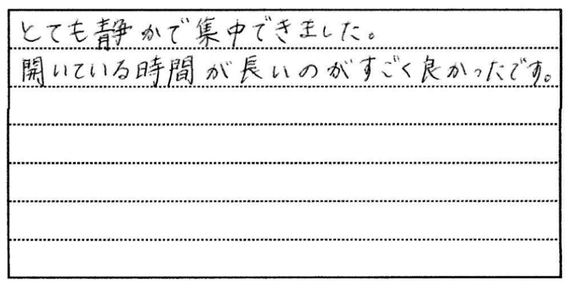 とても静かで集中できました。
開いている時間が長いのがすごく良かったです。